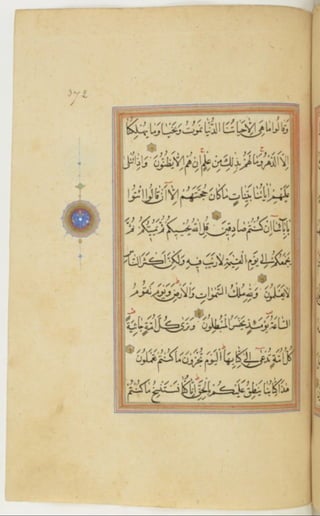 372
وَقَالُوا مَا هِيَ اِلَّا حَيَاتُنَا الدُّنْيَا نَمُوتُ وَنَحْيَا وَمَا يُهْلِكُنَا
اِلَّا الدَّهْرُ وَمَا لَهُمْ بِذٰلِكَ مِنْ عِلْمٍ اِنْ هُمْ اِلَّا يَظُنُّونَ وَاِذَا تُتْلٰى
عَلَيْهِمْ اٰيَاتُنَا بَيِّنَاتٍ مَا كَانَ حُجَّتَهُمْ اِلَّا اَنْ قَالُوا ائْتُوا
بِاٰبَائِنَا اِنْ كُنْتُمْ صَادِقِينَ قُلِ اللّٰهُ يُحْيِيكُمْ ثُمَّ يُمِيتُكُمْ ثُمَّ
يَجْمَعُكُمْ اِلٰى يَوْمِ الْقِيٰمَةِ لَا رَيْبَ فِيهِ وَلٰكِنَّ اَكْثَرَ النَّاسِ
لَا يَعْلَمُونَ وَلِلّٰهِ مُلْكُ السَّمٰوَاتِ وَالْاَرْضِ وَيَوْمَ تَقُومُ
السَّاعَةُ يَوْمَئِذٍ يَخْسَرُ الْمُبْطِلُونَ وَتَرٰى كُلَّ اُمَّةٍ جَاثِيَةً
كُلُّ اُمَّةٍ تُدْعٰى اِلٰى كِتَابِهَا اَلْيَوْمَ تُجْزَوْنَ مَا كُنْتُمْ تَعْمَلُونَ
هٰذَا كِتَابُنَا يَنْطِقُ عَلَيْكُمْ بِالْحَقِّ اِنَّا كُنَّا نَسْتَنْسِخُ مَا كُنْتُمْ